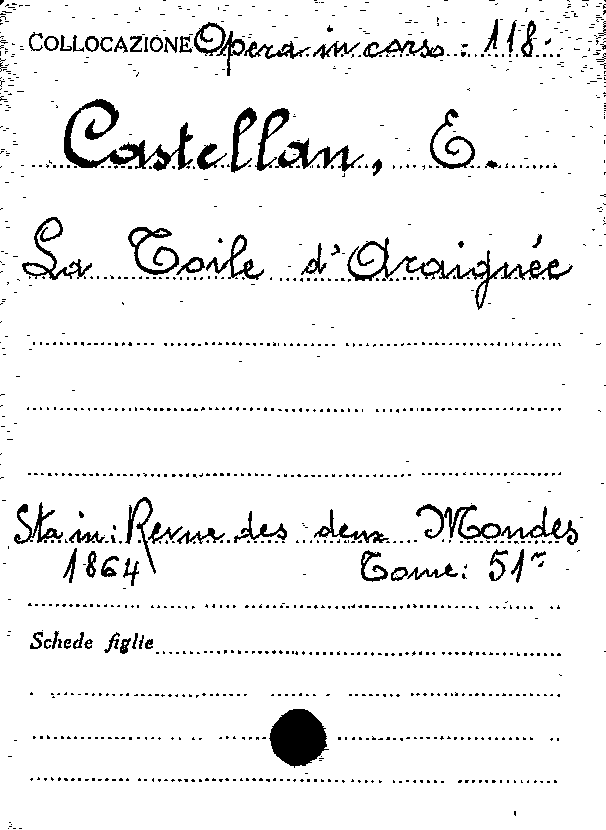 COLLOCAZIONE Opera in corso : 118.
Castellan, E.
La Toile d'Araignée
Sta in: Revue des deux Mondes
1864 Tome: 51º
Schede figlie